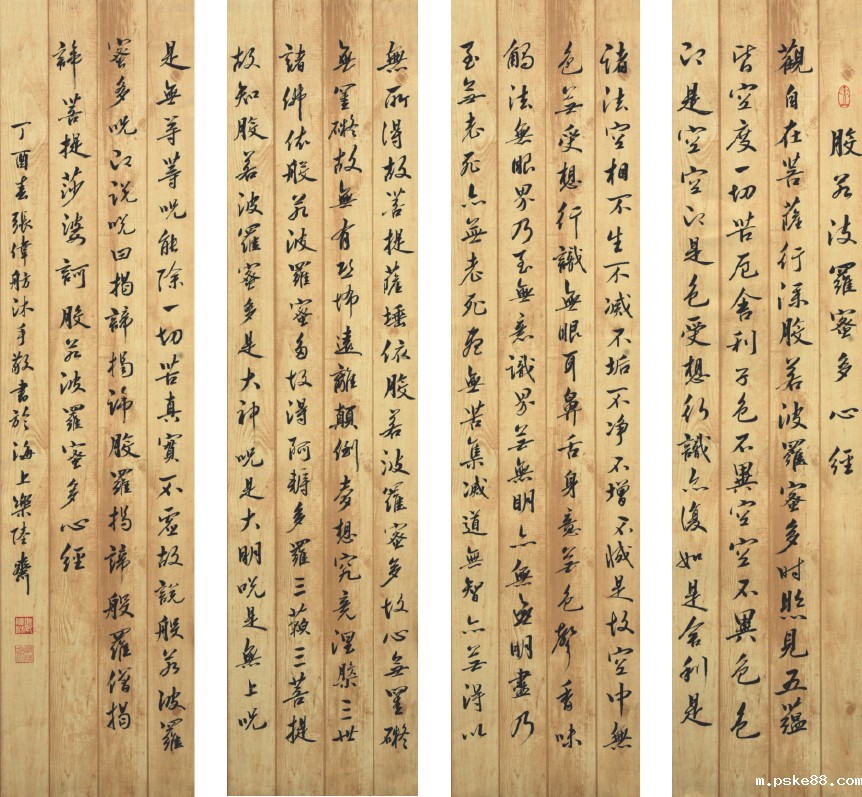 般若波羅蜜多心經
觀自在菩薩行深般若波羅蜜多时照見五蘊
皆空度一切苦厄舍利子色不異空空不異色色
即是空空即是色受想行識亦復如是舍利是
諸法空相不生不滅不垢不净不增不減是故空中無
色無受想行識無眼耳鼻舌身意無色聲香味
觸法無眼界乃至無意識界無無明亦無無明盡乃
至無老死亦無老死盡無苦集滅道無智亦無得以
無所得故菩提薩埵依般若波羅蜜多故心無罣礙
無罣礙故無有恐怖遠離顛倒夢想究竟涅槃三世
諸佛依般若波羅蜜多故得阿耨多羅三藐三菩提
故知般若波羅蜜多是大神呪是大明呪是無上呪
是無等等呪能除一切苦真實不虛故說般若波羅
蜜多呪即説呪曰揭諦揭諦般羅揭諦般羅僧揭
諦菩提莎婆訶般若波羅蜜多心經
丁酉春張偉舫沐手敬書於海上樂陸齋
m.pske88.com